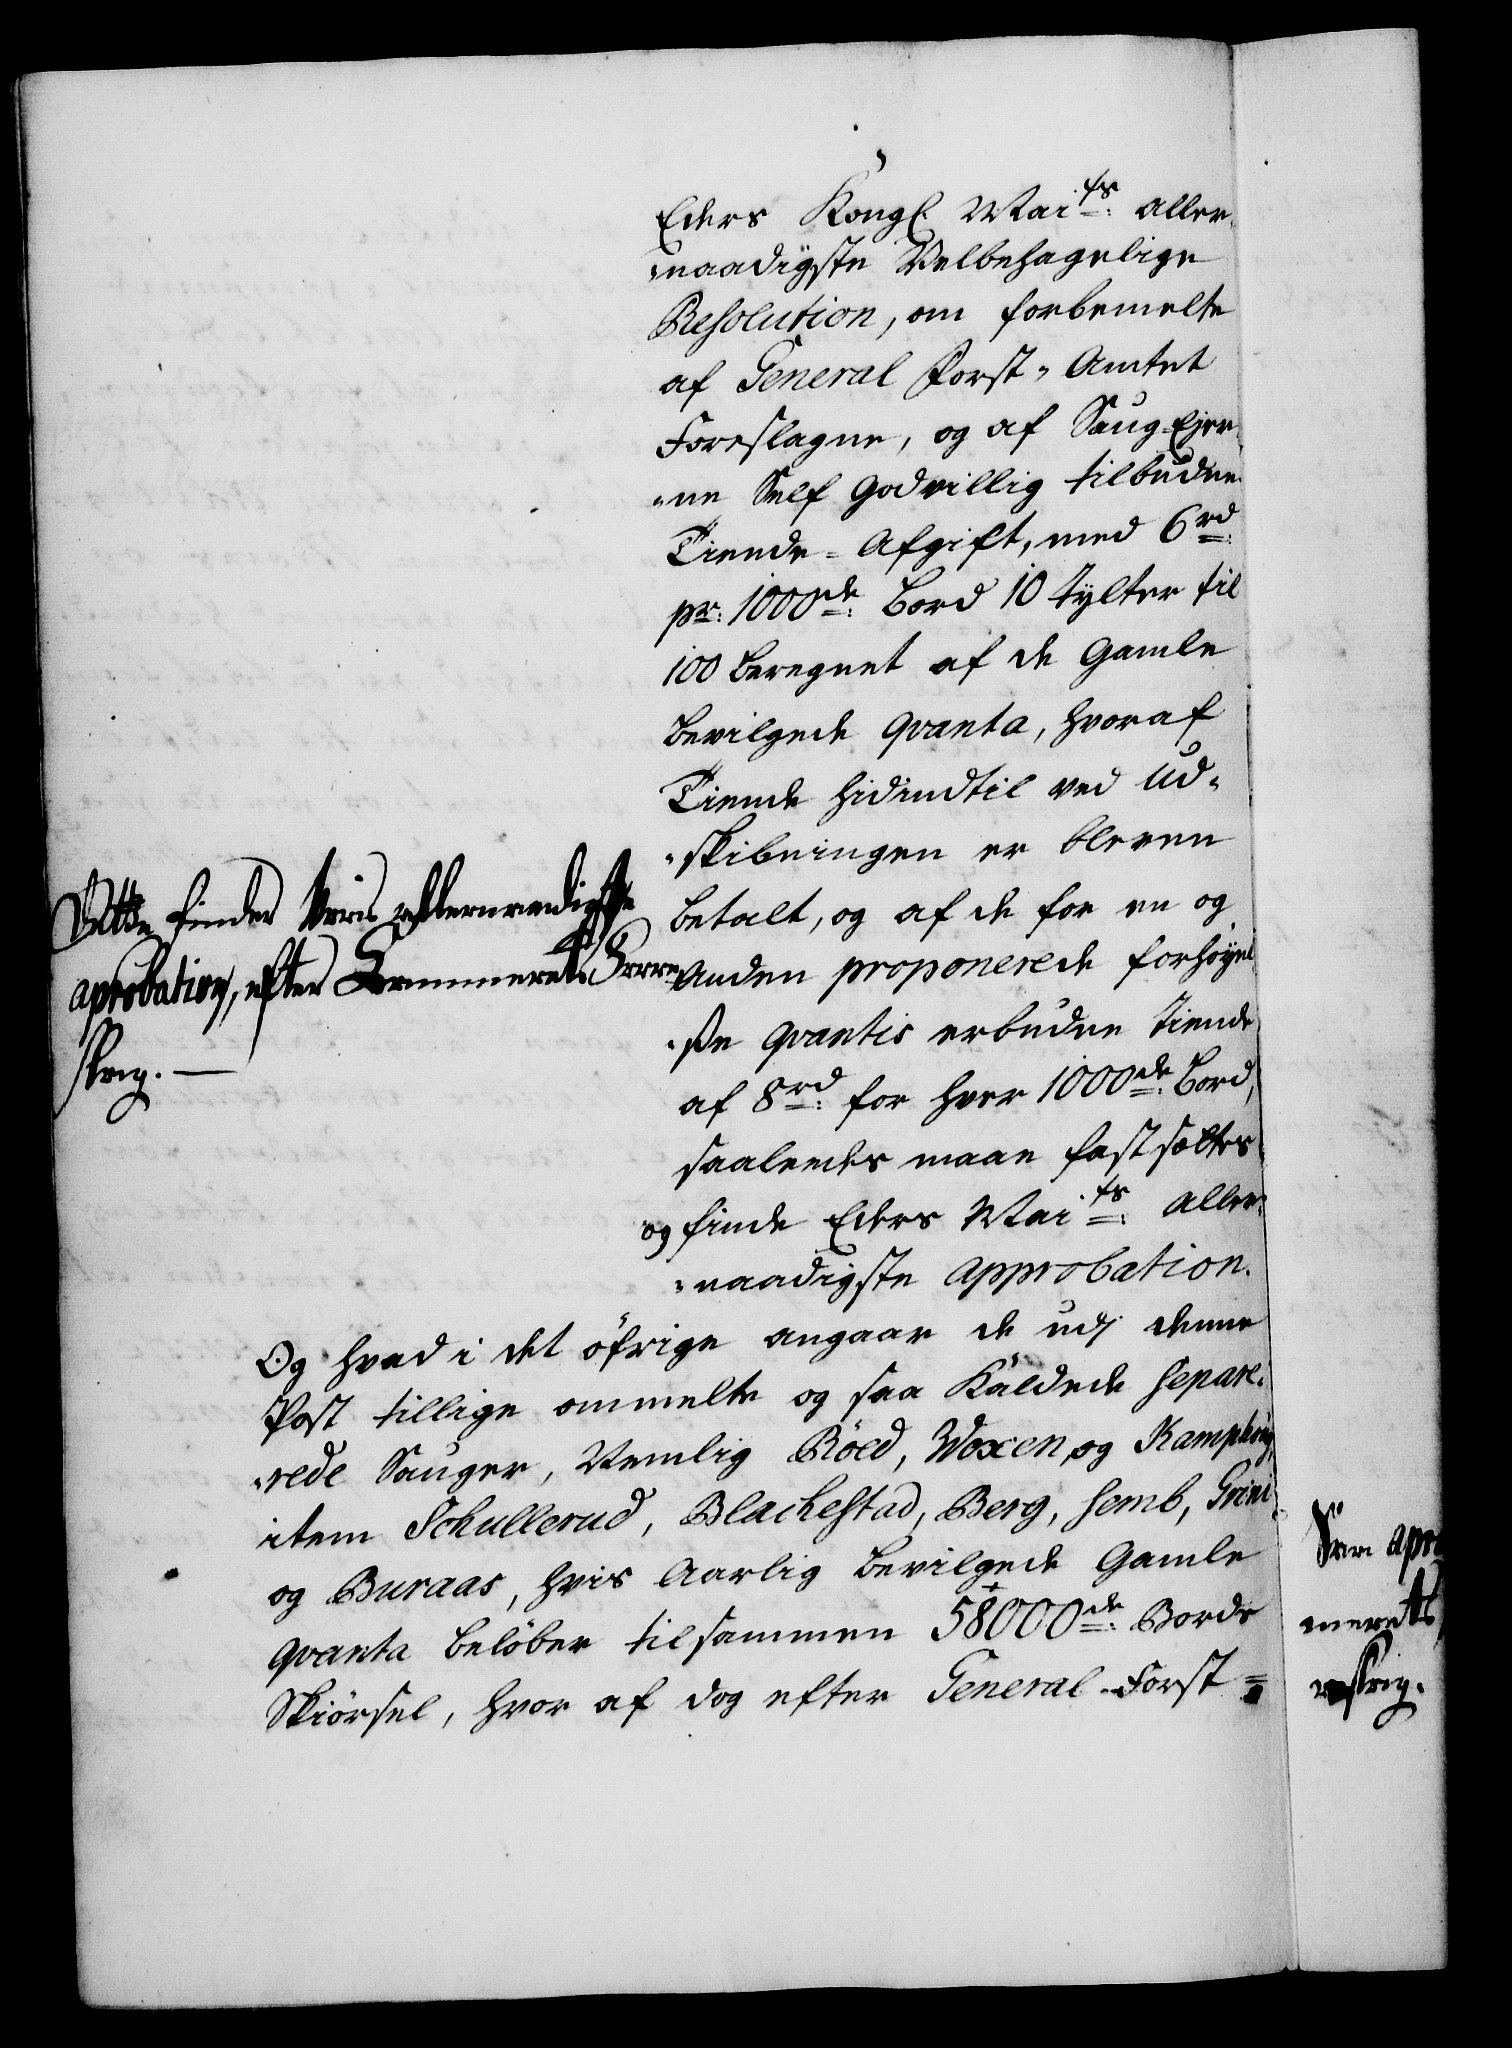 Eders Kongl. Mai<sup>ts</sup>: aller-
„naadigste Velbehagelige
Resolution, om forbemelte
af General Forst-Amtet
Foreslagne, og af Saug-Ejer-
„ne Self Godvillig tilbudne
Tiende-Afgift, med 6<sup>rd</sup>:
pr: 1000<sup>de</sup>: Bord 10 Tylter til
100 beregnet af de Gamle
bevilgede qvanta, hvoraf
Tiende hidindtil ved Ud-
„skibningen er bleven
betalt, og af de for en og
Anden proponerede forhöyel
„ße qvantis erbudne Tiende
af 8<sup>rd</sup>: for hver 1000<sup>de</sup>: Bord,
saaledes maae fastsættes
og finde Eders Mai<sup>ts</sup>: Aller-
„naadigste Approbation.
Dette finder Vores allernaadigste
aprobation, efter Cammerets Fore-
skrif. —
Og hvad i det öfrige angaar de udj denne
Post tillige ommelte og saa Kaldede Separe-
„rede Sauger, Nemlig Röed, Woxen, og Kamphoug
item Schullerud, Blachestad, Berg, Semb, Grini
og Buraas, hvis Aarlig bevilgede Gamle
qvanta belöber tilsammen 58000<sup>de</sup>: Bords
Skiörsel, hvor af dog efter General-Forst-
apro
merets
skrif.